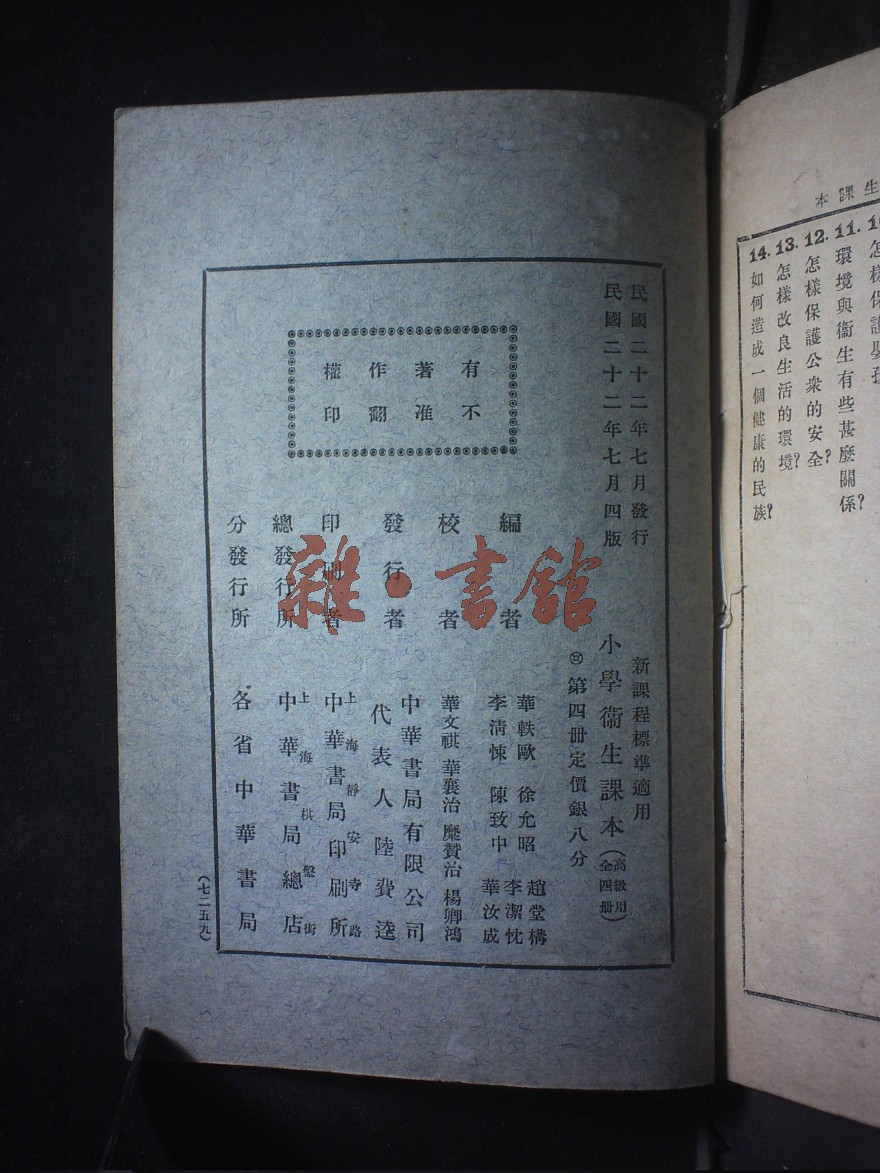 生課本
怎樣保護嬰孩
11.環境與衞生有些甚麼關係?
12.怎樣保護公衆的安全?
13.怎樣改良生活的環境?
14.如何造成一個健康的民族?
民國二十二年七月發行
民國二十二年七月四版
新課程標準適用
小學衞生課本(高級用全四册)
第四册定價銀八分
有著作權
不准翻印
編者
華軼歐 徐允昭 趙堂構
李清悚 陳致中 李潔忱
華汝成
校者
華文祺 華襄治 糜贊治 楊卿鴻
發行者
中華書局有限公司
代表人 陸費逵
印刷者
上海靜安寺路
中華書局印刷所
總發行所
上海棋盤街
中華書局總店
分發行所
各省中華書局
(七二五九)
雜·書館